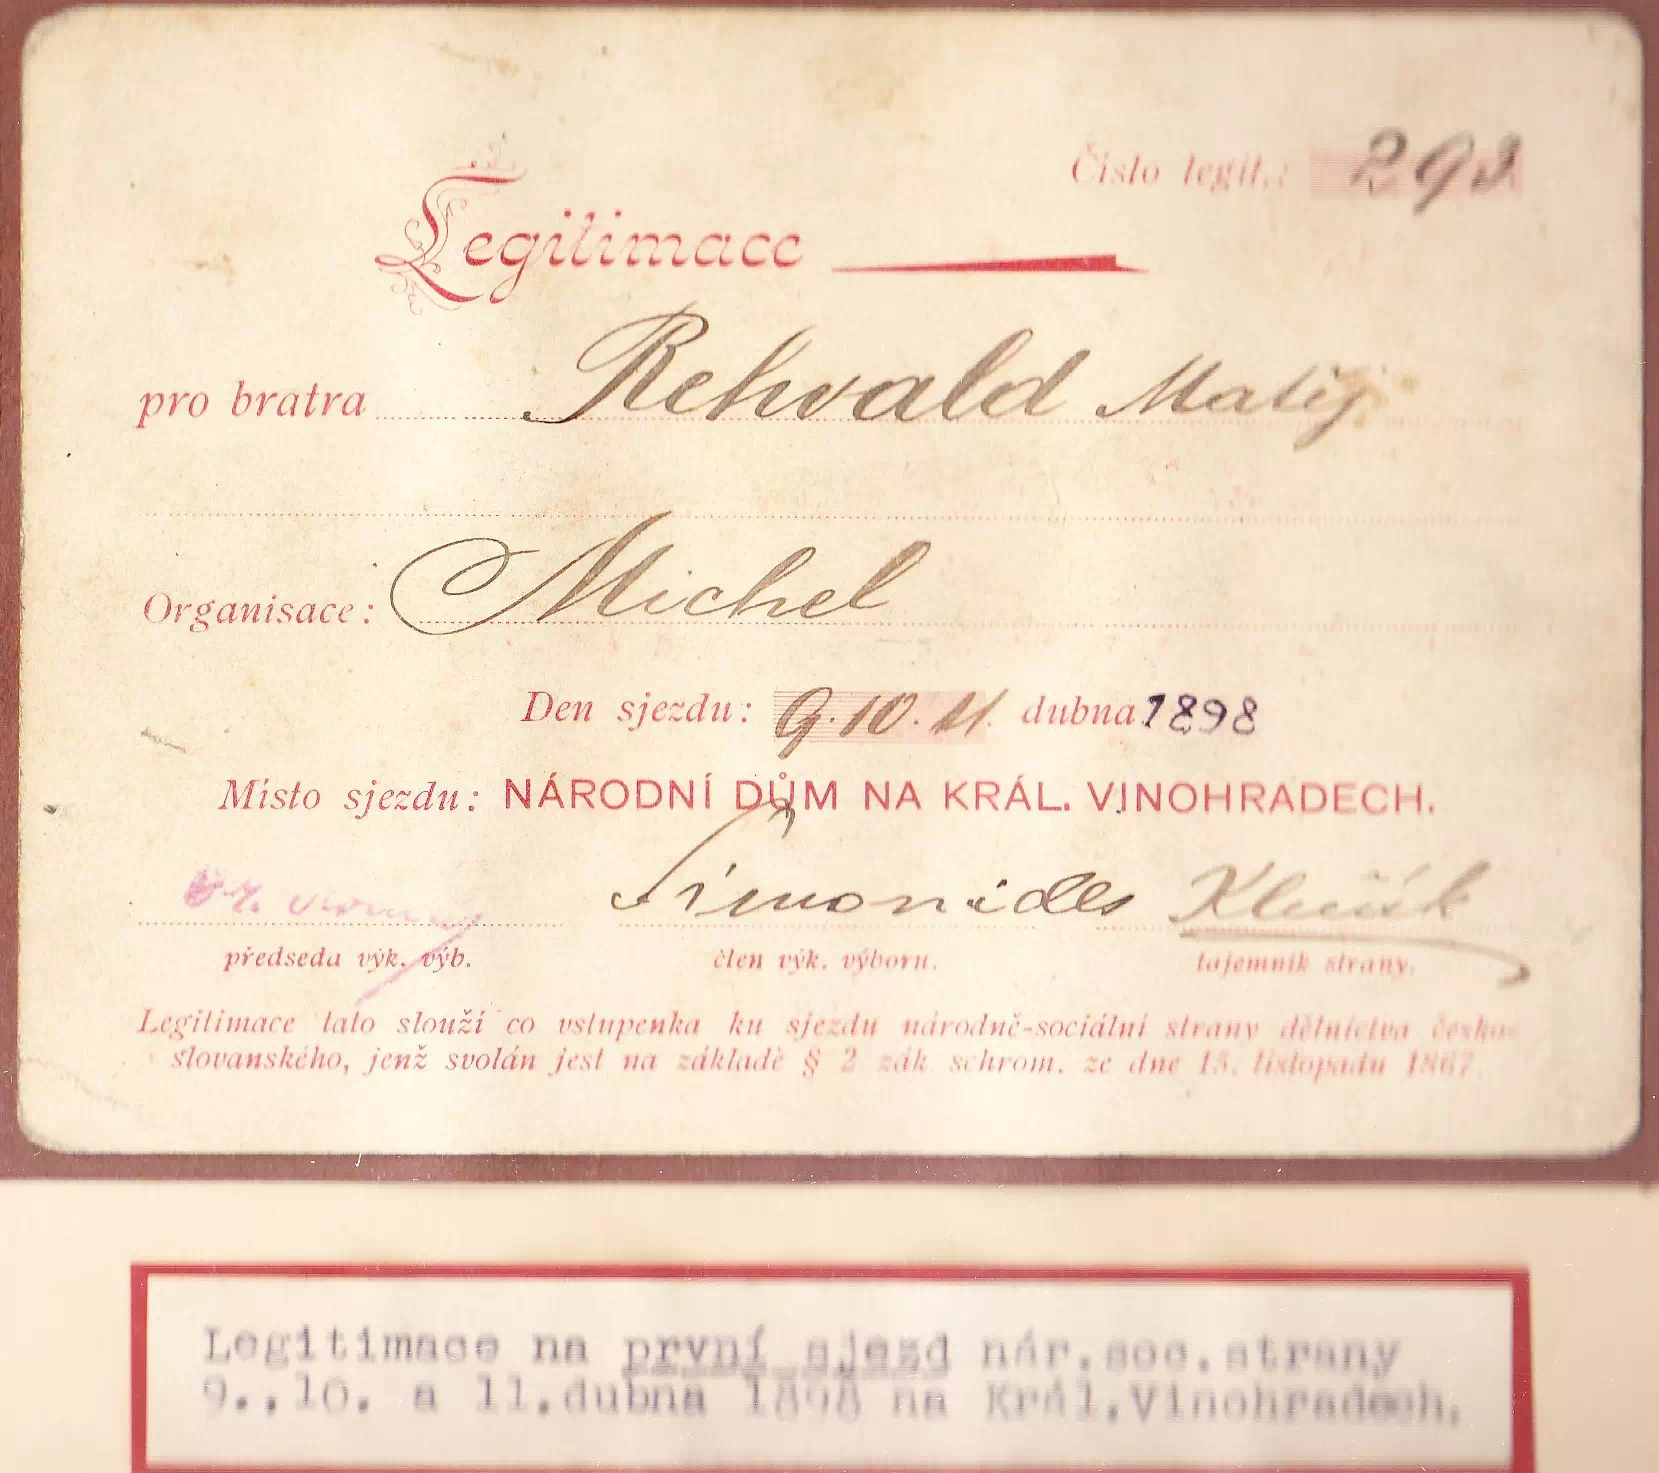 Číslo legit.: 293
Legitimace
pro bratra Rehvald Matěj
Organisace: Michel
Den sjezdu: 9. 10. 11. dubna 1898
Místo sjezdu: NÁRODNÍ DŮM NA KRÁL. VINOHRADECH.
Simonides Klučák
předseda výk. výb. člen výk. výboru. tajemník strany.
Legitimace tato slouží co vstupenka ku sjezdu národně-sociální strany dělnictva česko-
slovanského, jenž svolán jest na základě § 2 zák schrom. ze dne 15. listopadu 1867.
Legitimace na první sjezd nár.soc.strany
9.,10. a 11.dubna 1898 na Král.Vinohradech.